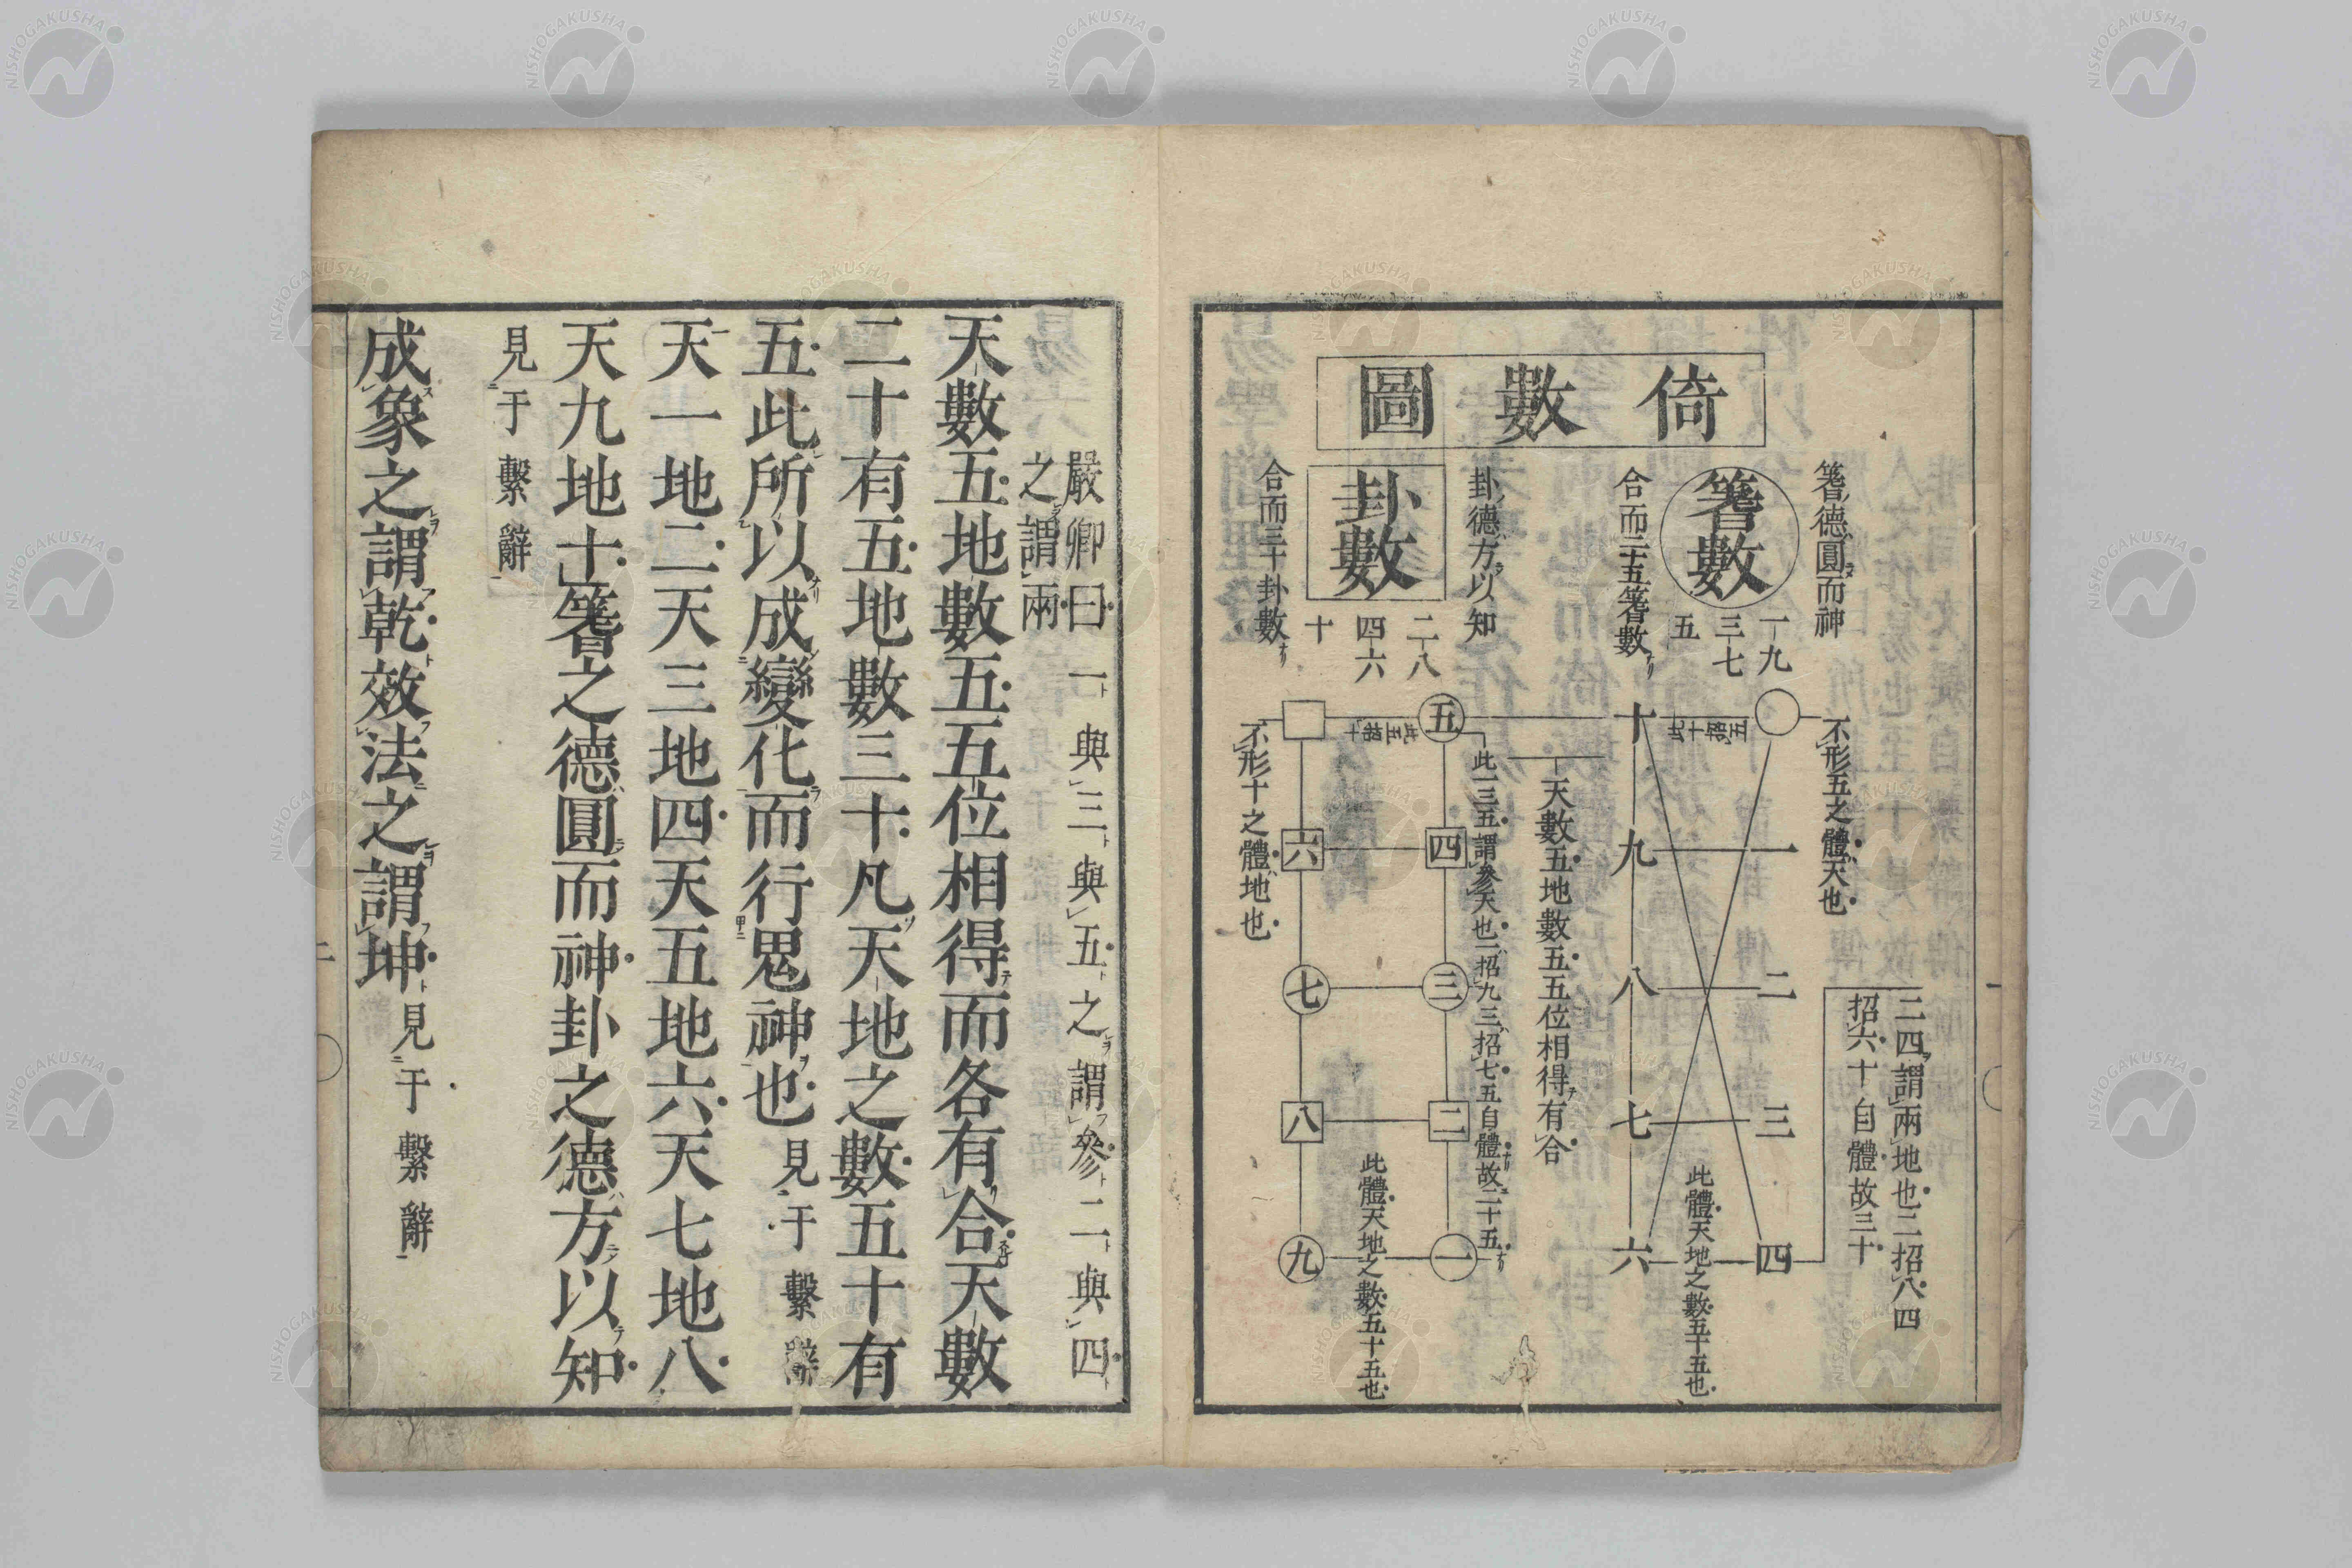 倚數圖
蓍德圓而神
蓍數
一九
三七
五
合而二十五蓍數
卦德方以知
卦數
二八
四六
十
合而三十卦數
不形五之體天也
二四謂兩地也二招八四
招六十自體故三十
一
二
三
四
十
九
八
七
六
此體天地之數五十五也
天數五地數五五位相得有合
此一三五謂參天也一招九三招七五自體故二十五
五
四
三
二
一
六
七
八
九
此體天地之數五十五也
不形十之體地也
嚴卿曰一與三與五之謂參二與四
之謂兩
天數五地數五五位相得而各有合天數
二十有五地數三十凡天地之數五十有
五此所以成變化而行鬼神也見于繫辭
天一地二天三地四天五地六天七地八
天九地十蓍之德圓而神卦之德方以知
見于繫辭
成象之謂乾效法之謂坤見于繫辭
二
NISHOGAKUSHA